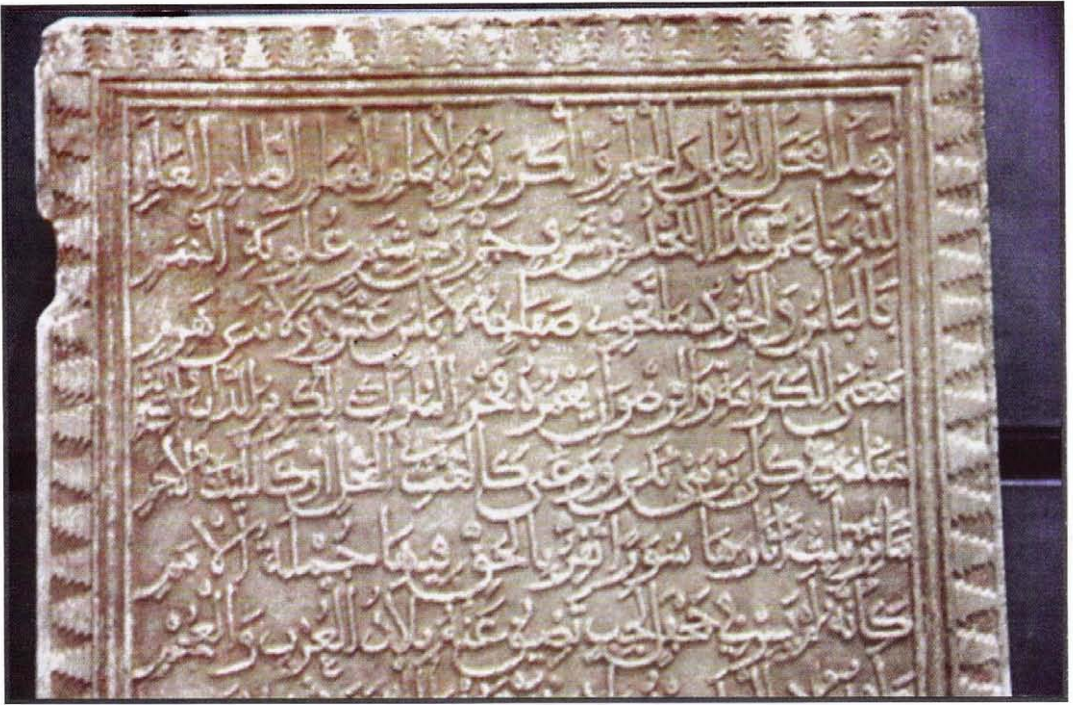 هذا محل العلى والحلم والكرم قبر الامام الهمام الطاهر العلم
لله ما ضم هذا اللحد من شرف جم ومن شيم علوية الهمم
فالباس والجود ما تحوي صفائحه لا باس عنترة ولا ندى هرم
مغنى الكرامة والرضوان يعهده فخر الملوك الكريم الذات والشيم
مقامه في كلي يومي ندى ووغى كالغيث في المحل او كالليث في الاجم
مآثر تليت آثارها سورا تقر بالحق فيها جملة الامم
كانه لم يسر في محفل لجب تضيق عنه بلاد العرب والعجم